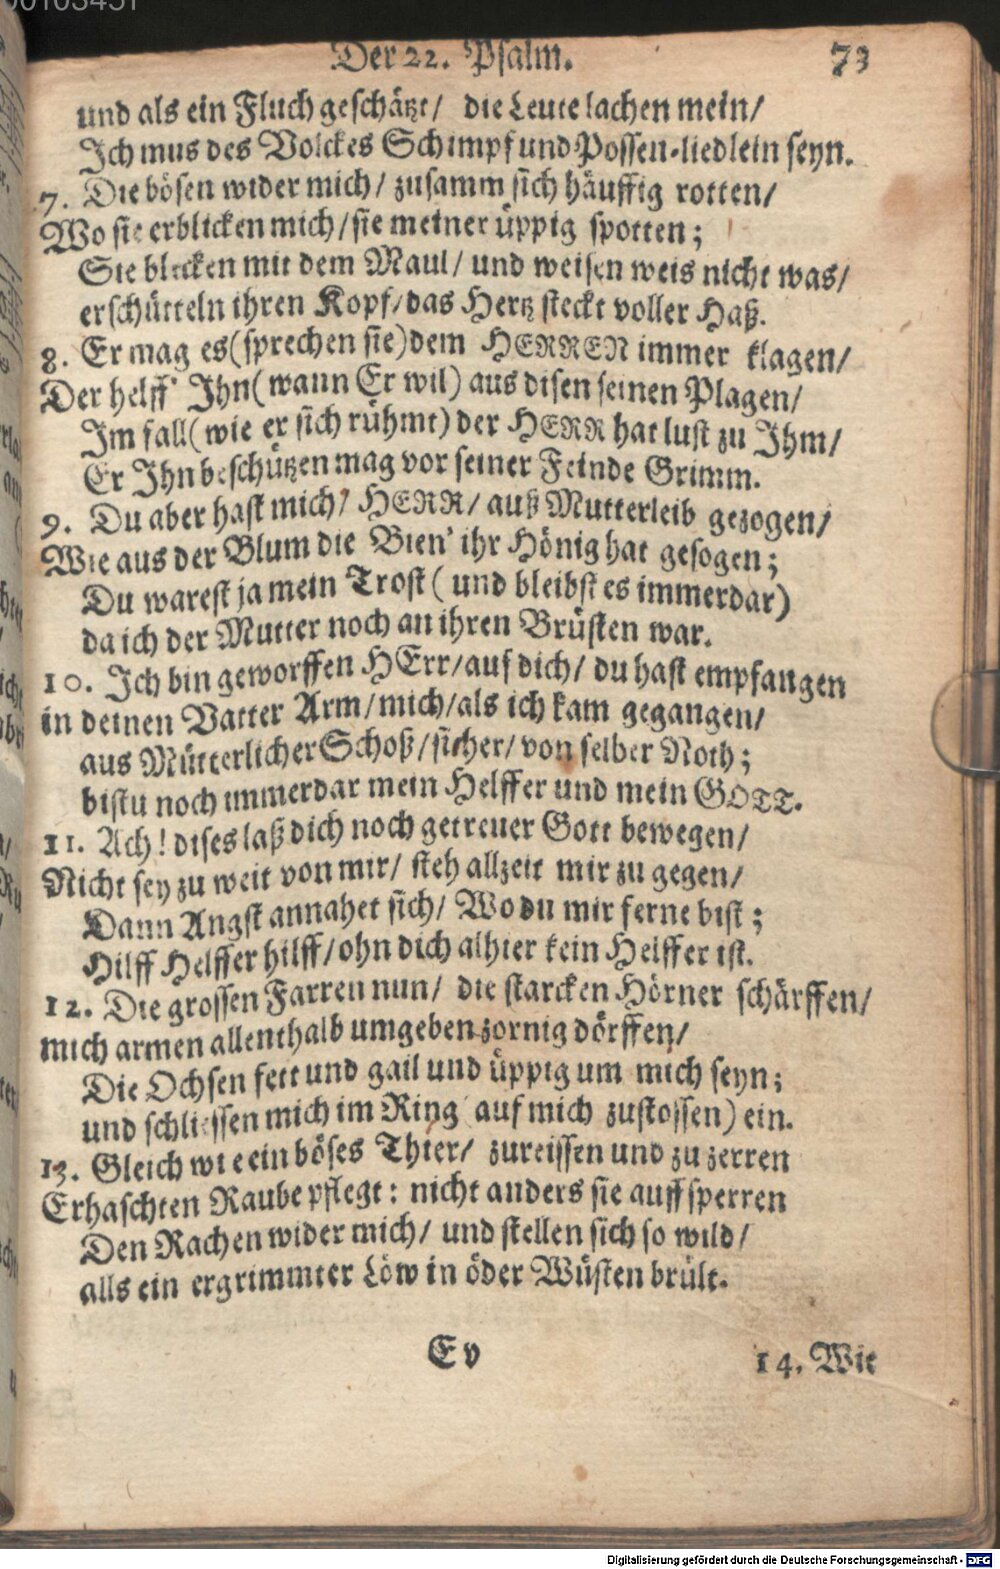 Der 22. Psalm. 73
und als ein Fluch geschätzt/ die Leute lachen mein/
Ich mus des Volckes Schimpf und Possen-liedlein seyn.
7. Die bösen wider mich/ zusamm sich häuffig rotten/
Wo sie erblicken mich/ sie meiner üppig spotten;
Sie blecken mit dem Maul/ und weisen weis nicht was/
erschütteln ihren Kopf/ das Hertz steckt voller Haß.
8. Er mag es (sprechen sie) dem HERREN immer klagen/
Der helff' Ihn (wann Er wil) aus disen seinen Plagen/
Im fall (wie er sich rühmt) der HERR hat lust zu Ihm/
Er Ihn beschützen mag vor seiner Feinde Grimm.
9. Du aber hast mich/ HERR/ auß Mutterleib gezogen/
Wie aus der Blum die Bien' ihr Hönig hat gesogen;
Du warest ja mein Trost (und bleibst es immerdar)
da ich der Mutter noch an ihren Brüsten war.
10. Ich bin geworffen HErr/ auf dich/ du hast empfangen
in deinen Vatter Arm/ mich/ als ich kam gegangen/
aus Mütterlicher Schoß/ sicher/ von selber Noth;
bistu noch immerdar mein Helffer und mein GOTT.
11. Ach! dises laß dich noch getreuer Gott bewegen/
Nicht sey zu weit von mir/ steh allzeit mir zu gegen/
Dann Angst annahet sich/ Wo du mir ferne bist;
Hilff Helffer hilff/ ohn dich alhier kein Helffer ist.
12. Die grossen Farren nun/ die starcken Hörner schärffen/
mich armen allenthalb umgeben zornig dörffen/
Die Ochsen fett und gail und üppig um mich seyn;
und schliessen mich im Ring auf mich zustossen) ein.
13. Gleich wie ein böses Thier/ zureissen und zu zerren
Erhaschten Raube pflegt: nicht anders sie auff sperren
Den Rachen wider mich/ und stellen sich so wild/
alls ein ergrimmter Löw in öder Wüsten brült.
E v 14. Wie
Digitalisierung gefördert durch die Deutsche Forschungsgemeinschaft - DFG